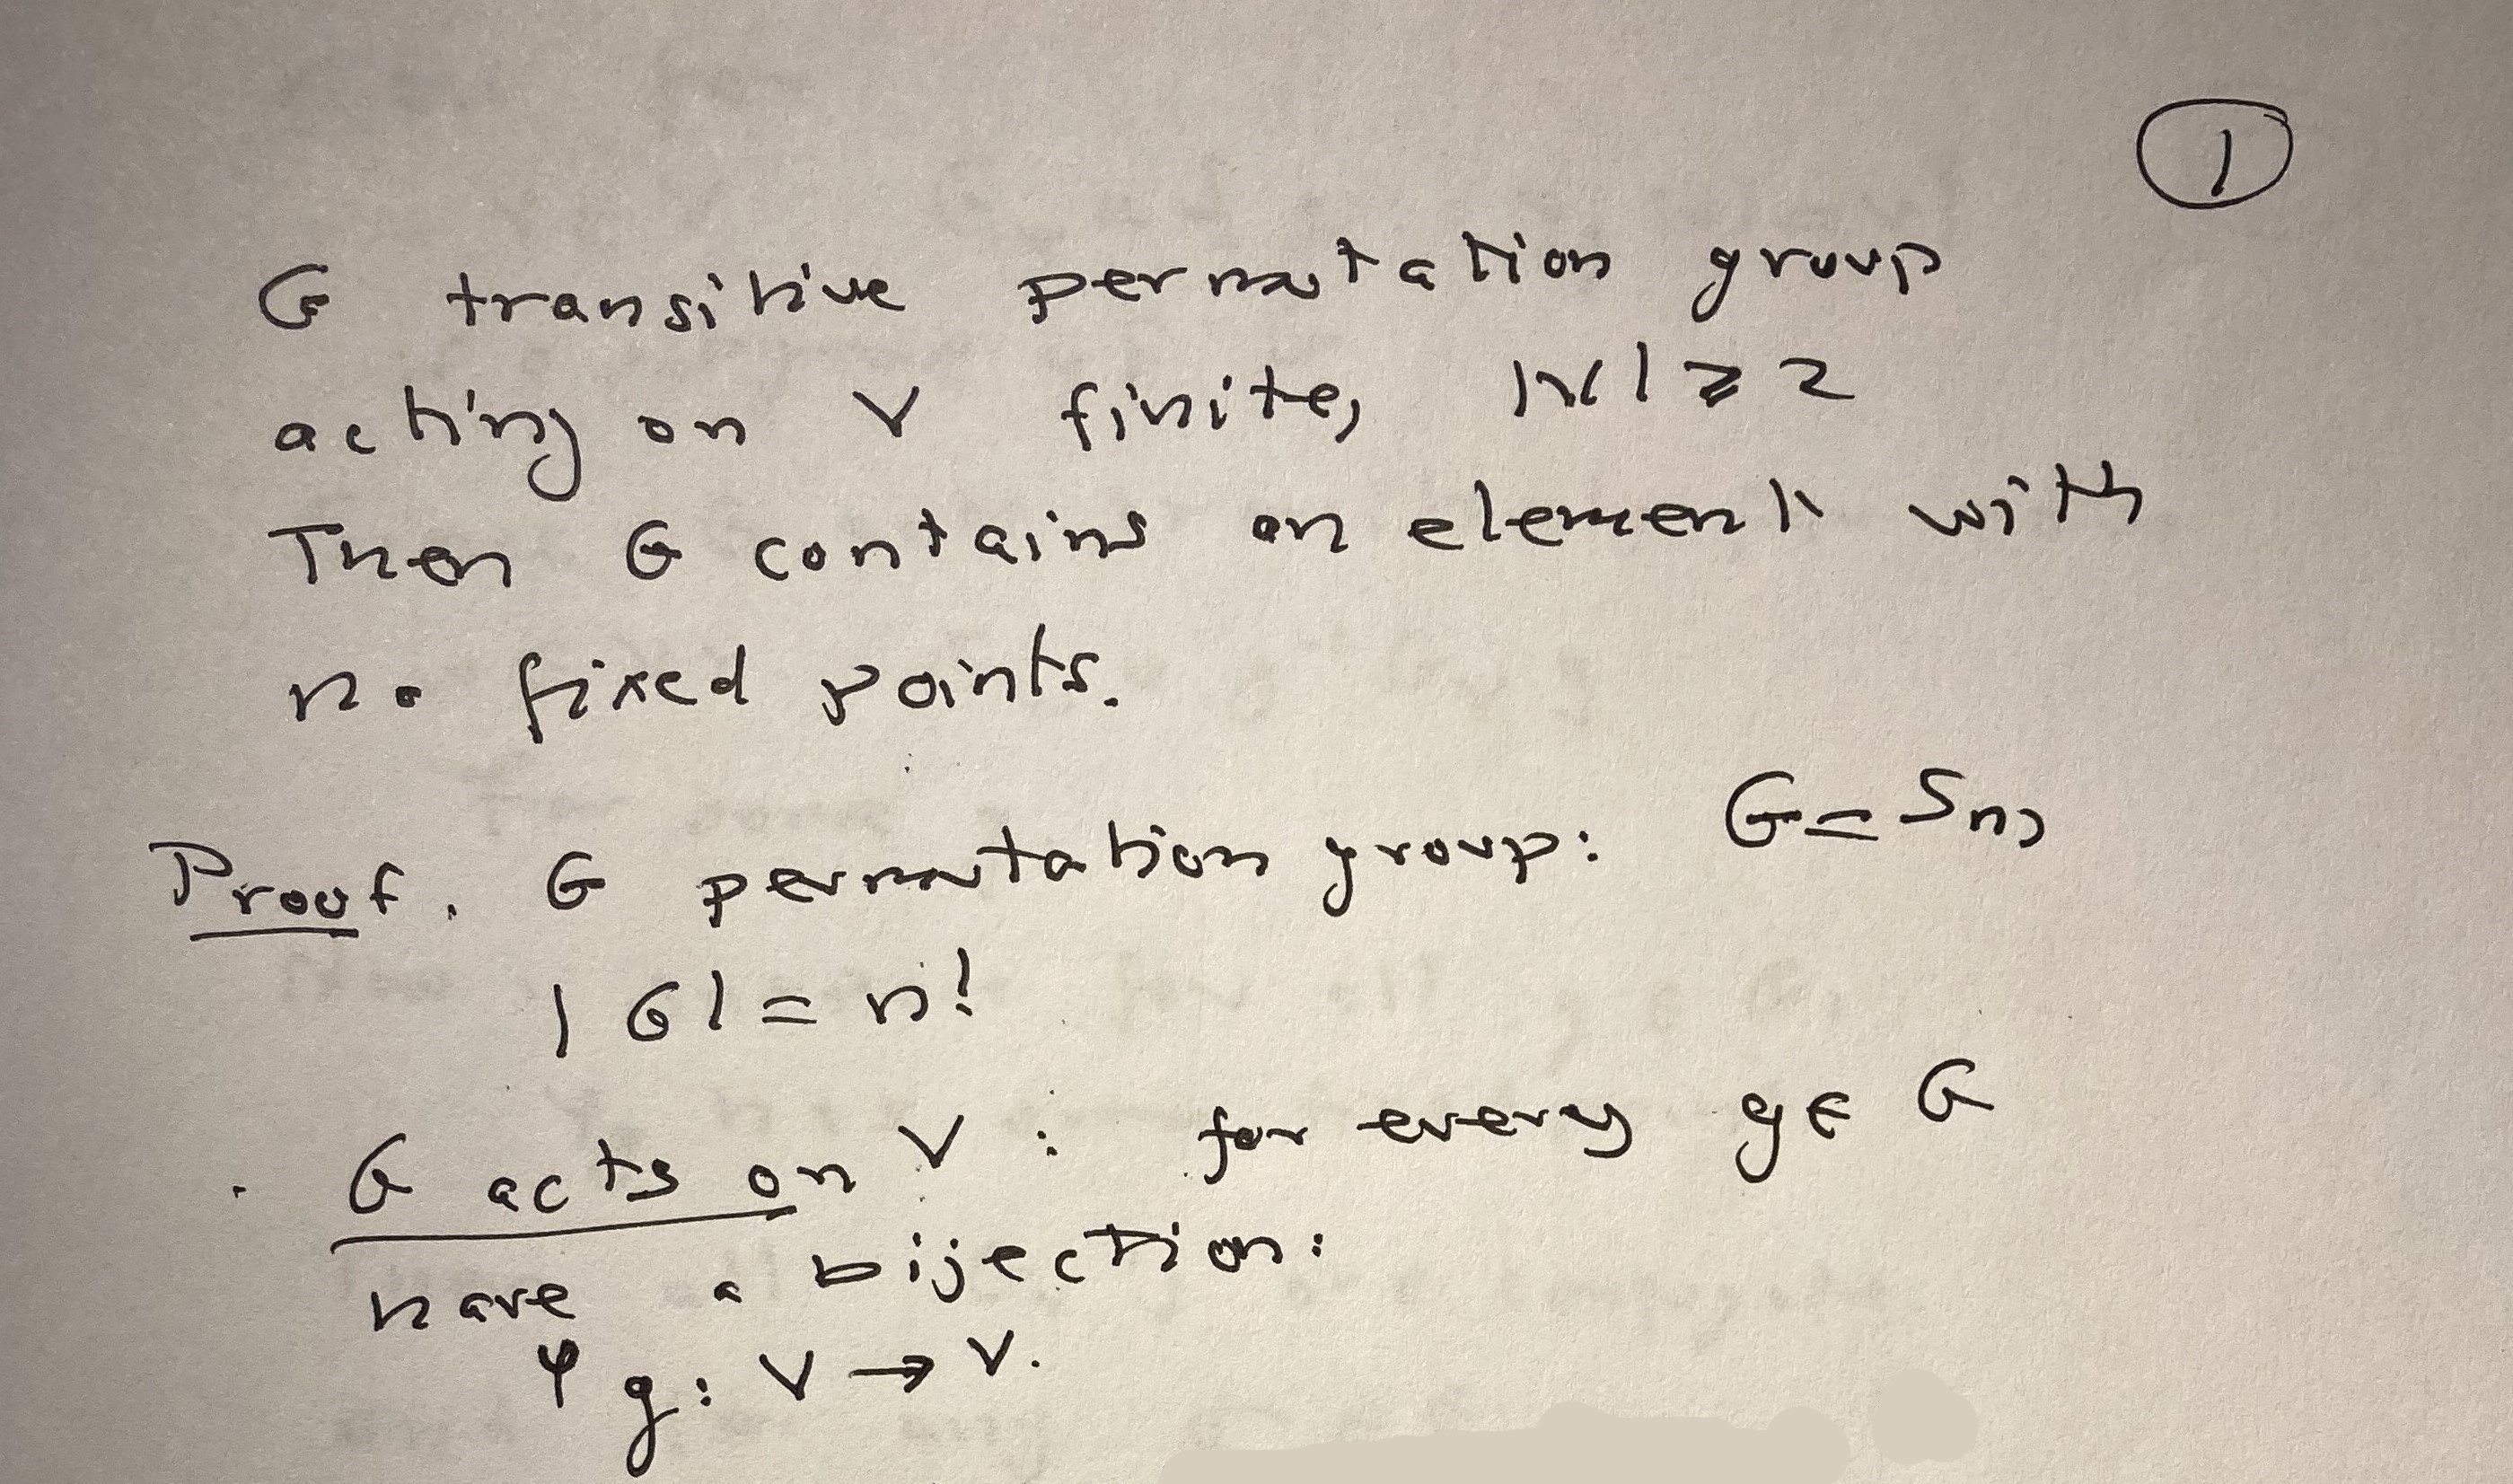 1
G transitive permutation group
acting on V finite, |V| ≥ 2
Then G contains an element with
no fixed points.
Proof. G permutation group: G = Sn,
|G| = n!
. G acts on V : for every g ∈ G
have a bijection:
φg: V → V.